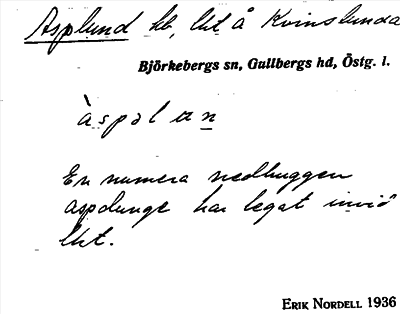 Asplund ht, lht å Kvinslunda
Björkebergs sn, Gullbergs hd, Östg. l.
àspəlun
En numera nedhuggen
aspdunge har legat invid
lht.
ERIK NORDELL 1936